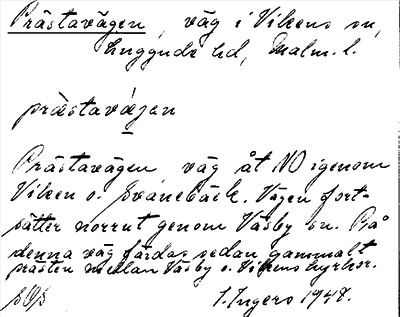 Prästavägen, väg i Vikens sn,
Luggude hd, Malm. l.
prästavägen
Prästavägen, väg åt NO igenom
Viken o. Svanebäck. Vägen fort-
sätter norrut genom Väsby sn. På
denna väg färdas sedan gammalt
prästen mellan Väsby o. Vikens kyrkor.
I. Ingers 1948.